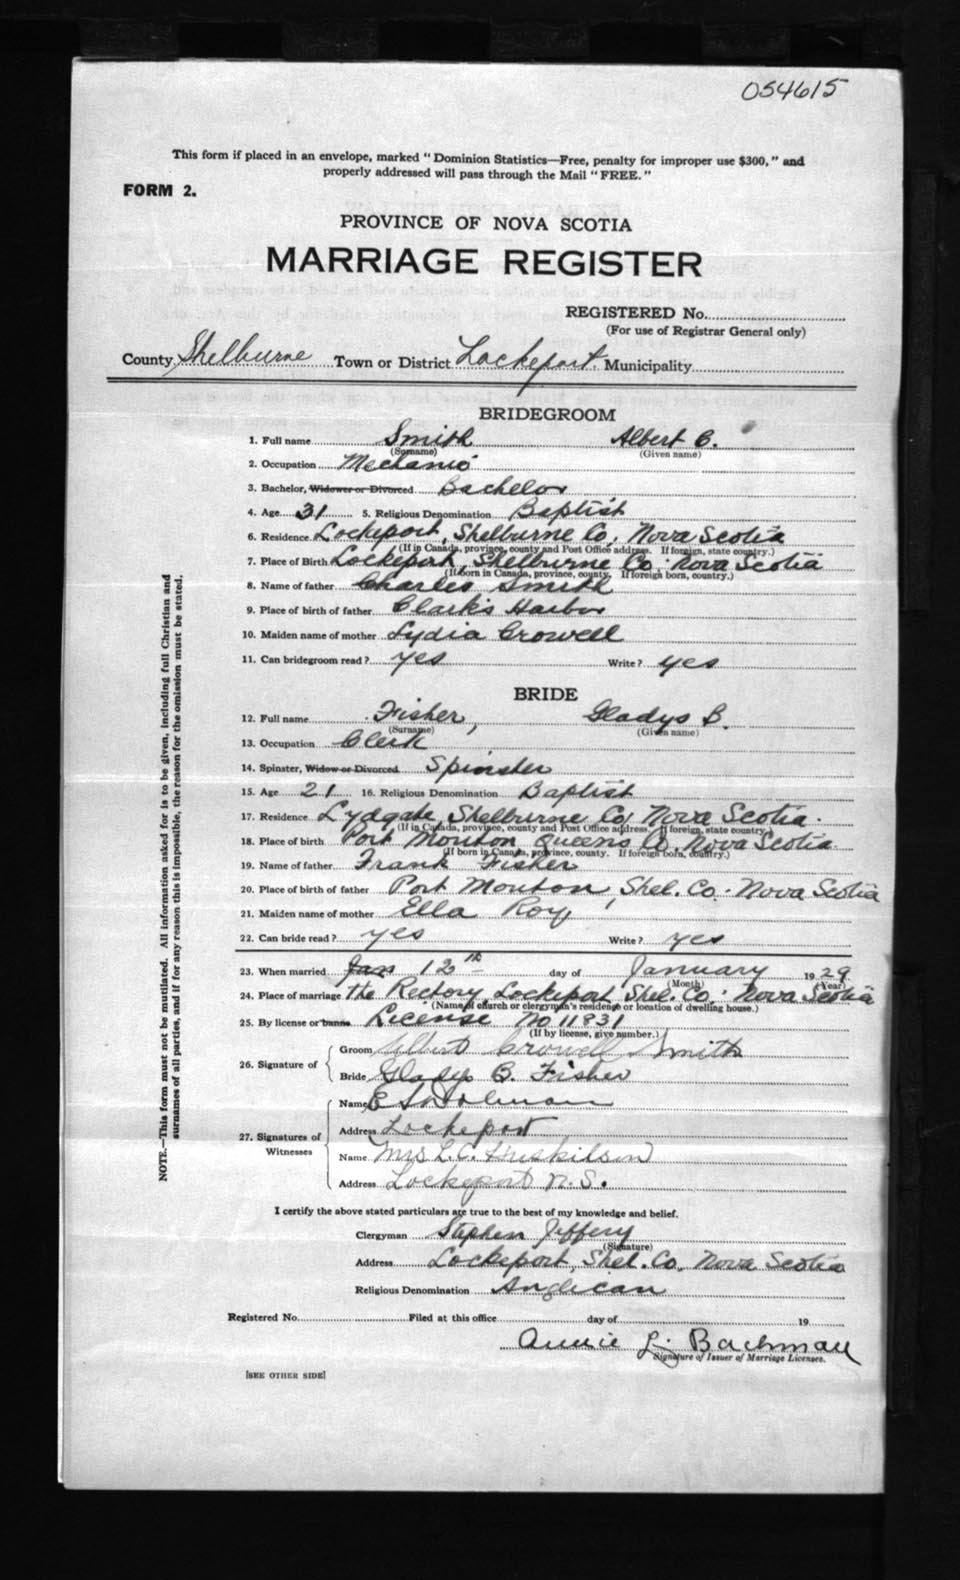 054615
This form if placed in an envelope, marked "Dominion Statistics—Free, penalty for improper use $300," and
properly addressed will pass through the Mail "FREE."
FORM 2.
PROVINCE OF NOVA SCOTIA
MARRIAGE REGISTER
REGISTERED No.
(For use of Registrar General only)
County Shelburne Town or District Lockeport. Municipality
BRIDEGROOM
1. Full name Smith Albert C.
(Surname) (Given name)
2. Occupation Mechanic
3. Bachelor, Widower or Divorced Bachelor
4. Age 31 5. Religious Denomination Baptist
6. Residence Lockeport, Shelburne Co, Nova Scotia
(If in Canada, province, county and Post Office address. If foreign, state country.)
7. Place of Birth Lockeport, Shelburne Co. Nova Scotia
(If born in Canada, province, county. If foreign born, country.)
8. Name of father Charles Smith
9. Place of birth of father Clark's Harbor
10. Maiden name of mother Lydia Crowell
11. Can bridegroom read? yes Write? yes
BRIDE
12. Full name Fisher, Gladys B.
(Surname) (Given name)
13. Occupation Clerk
14. Spinster, Widow or Divorced Spinster
15. Age 21 16. Religious Denomination Baptist
17. Residence Lydgate, Shelburne Co, Nova Scotia.
(If in Canada, province, county and Post Office address. If foreign, state country.)
18. Place of birth Port Mouton Queens Co. Nova Scotia.
(If born in Canada, province, county. If foreign born, country.)
19. Name of father Frank Fisher
20. Place of birth of father Port Mouton, Shel. Co. Nova Scotia
21. Maiden name of mother Ella Roy
22. Can bride read? yes Write? yes
23. When married Jan 12th day of January 1929
(Month) (Year)
24. Place of marriage the Rectory, Lockeport Shel. Co. Nova Scotia
(Name of church or clergyman's residence or location of dwelling house.)
25. By license or banns License No 11831
(If by license, give number.)
26. Signature of
Groom Albert Crowell Smith
Bride Gladys B. Fisher
27. Signatures of Witnesses
Name E
Address Lockeport
Name Mrs L.C. Huskilson
Address Lockeport N.S.
I certify the above stated particulars are true to the best of my knowledge and belief.
Clergyman Stephen Jeffery
(Signature)
Address Lockeport, Shel. Co. Nova Scotia
Religious Denomination Anglican
Registered No. Filed at this office day of 19
Annie L. Bachman
Signature of Issuer of Marriage Licenses.
[SEE OTHER SIDE]
NOTE.—This form must not be mutilated. All information asked for is to be given, including full Christian and
surnames of all parties, and if for any reason this is impossible, the reason for the omission must be stated.